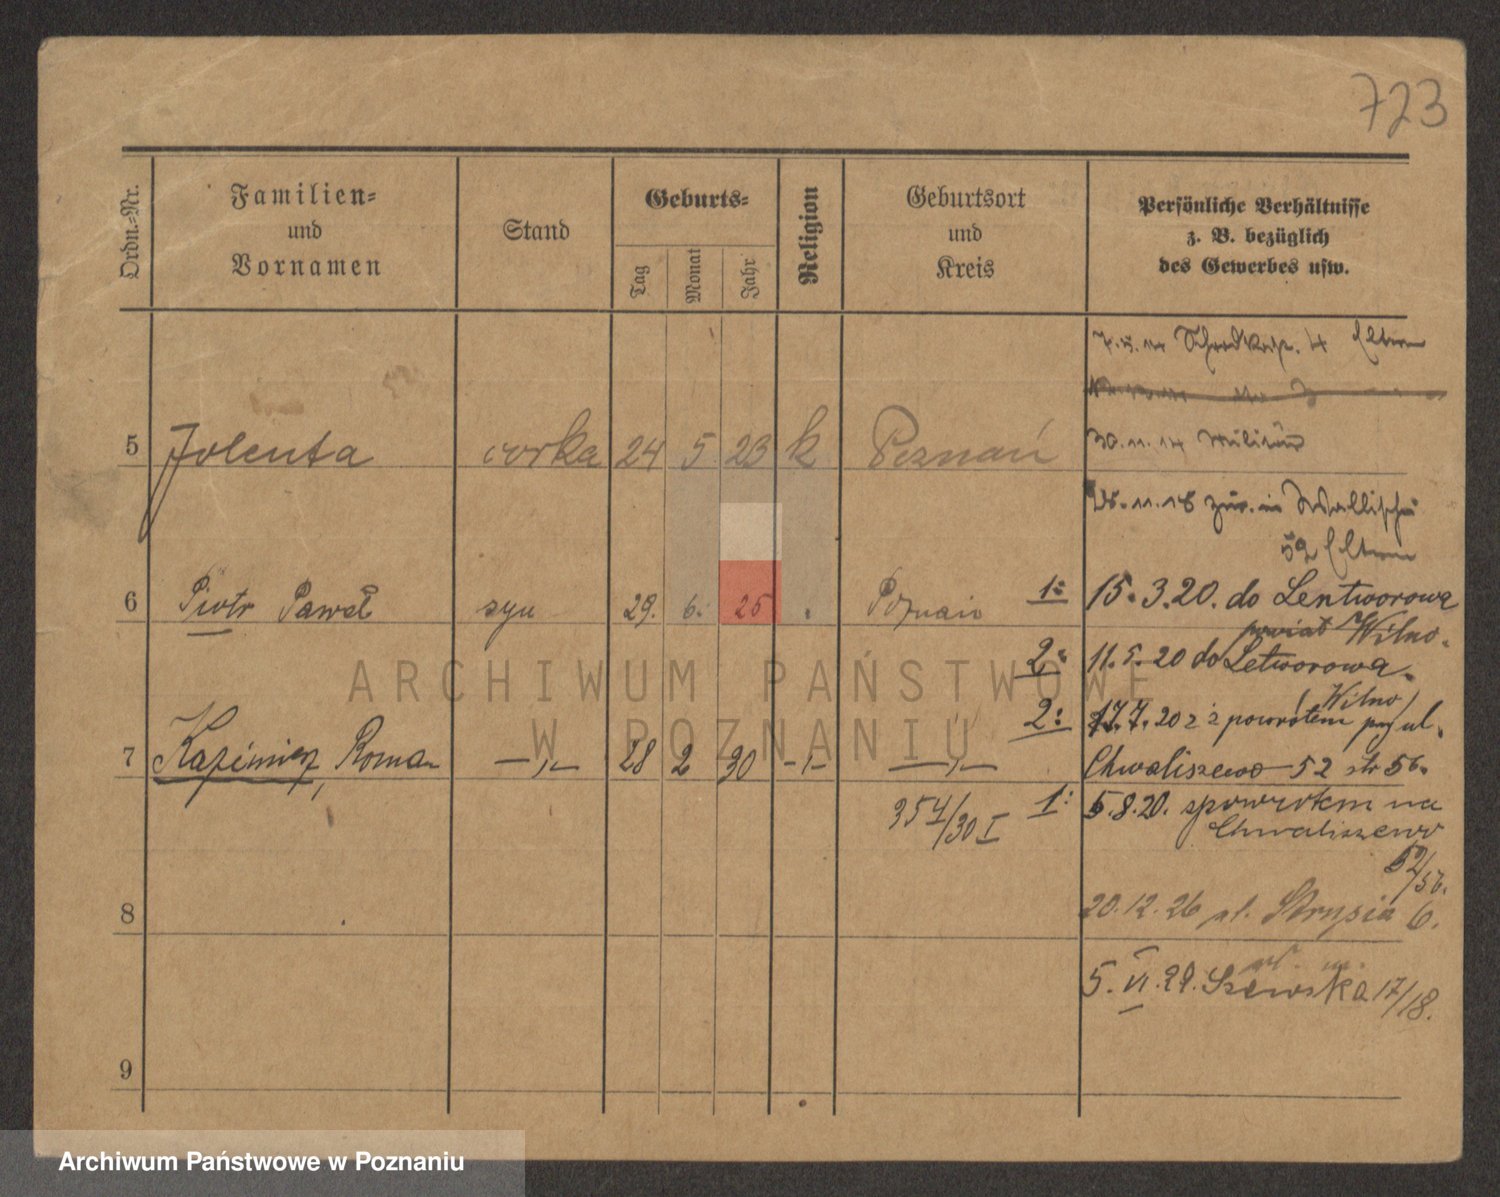 723
Ordn.=Nr.
Familien=
und
Vornamen
Stand
Geburts=
Tag
Monat
Jahr
Religion
Geburtsort
und
Kreis
Persönliche Verhältnisse
z. B. bezüglich
des Gewerbes usw.
Eltern
5 Jolenta corka 24 5 23 k Poznań
30.11.14 Militär
18 zur. in Wallischei
52 Eltern
6 Piotr Paweł syn 29. 6. 25 Poznań
1: 15.3.20. do Lentworowa
powiat Wilno.
2: 11.5.20 do Letworowa.
(Wilno)
2: 17.7.20 z powrotem ul.
7 Kazimierz, Roman —„— 28 2 30 -„- —„—
Chwaliszewo 52 56.
354/30 I
1: 5.8.20. spowrotem na
Chwaliszewo
52/56.
8
20.12.26 Strusia 6.
5.VI.29. Szewska 17/18.
9
ARCHIWUM PAŃSTWOWE
W POZNANIU
Archiwum Państwowe w Poznaniu